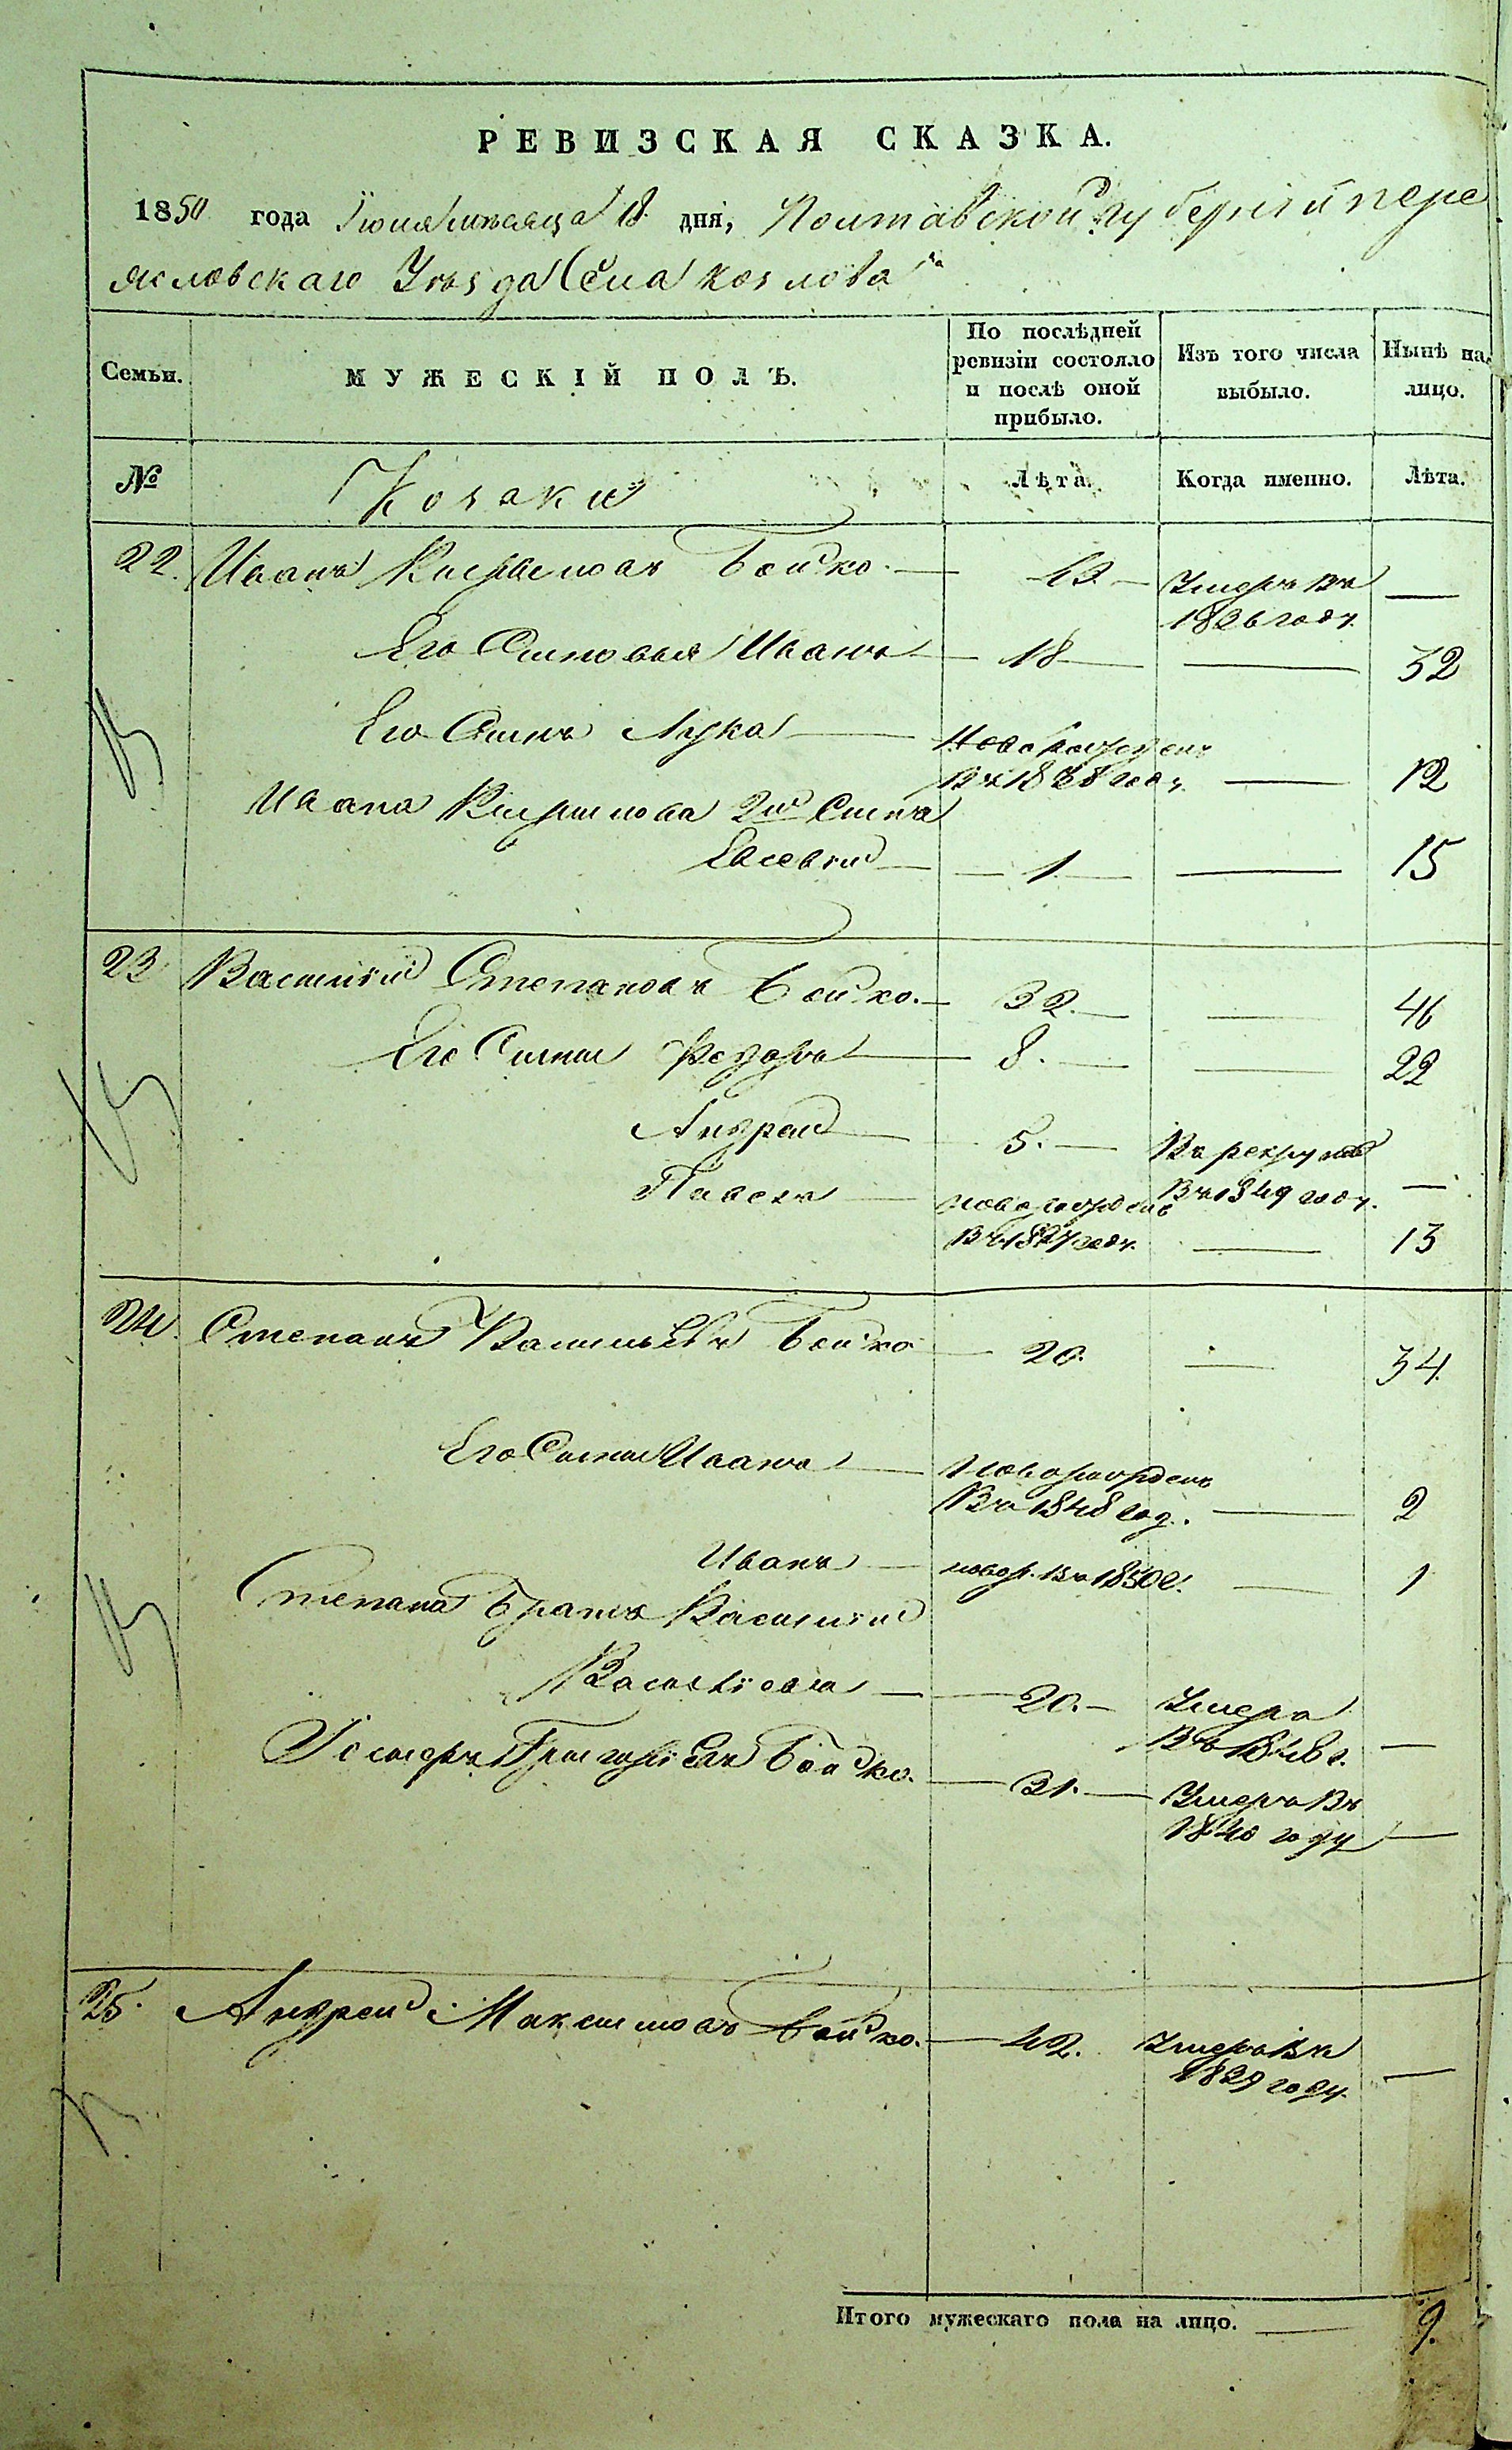 РЕВИЗСКАЯ СКАЗКА.
1850 года Іюня мѣсяца 18 дня, Полтавской губерніи пере
яславскаго Уѣзда Села козлова
По послѣдней ревизіи состояло и послѣ оной прибыло.
Изъ того числа выбыло.
Нынѣ на лицо.
Семьи. МУЖЕСКІЙ ПОЛЪ.
№ Козаки Лѣта. Когда именно. Лѣта.
22. Иванъ Бойко. — Умеръ въ —
18 6 году.
Его Сыновья Иванъ — 18 — — 32
Его Сынъ Лука — Новорожденъ
въ 1838 году — 12
Ивана 2й Сынъ
Евсевій — 1 — — 15
23 Василій Степановъ Бойко. — 32. — — 46
Его Сыны Федоръ — 8. — — 22
Андрей — 5. — Въ рекруты
въ 1849 году. —
Павелъ — новорожденъ
въ 18 7 году. — 13
24. Степанъ Васильевъ Бойко — 20. — 34.
Его Сыны Иванъ — Новорожденъ
въ 1848 год. — 2
Иванъ — новор. въ 1850 г. — 1
Степана Братъ Василій
Васильевъ — 20. — Умеръ
въ 1848 г. —
Іосифъ Григорьевъ Бойко. — 31. — Умеръ въ
1840 году —
25. Андрей Максимовъ Бойко. — 42. Умеръ въ
1839 году. —
Итого мужескаго пола на лицо. — 9.